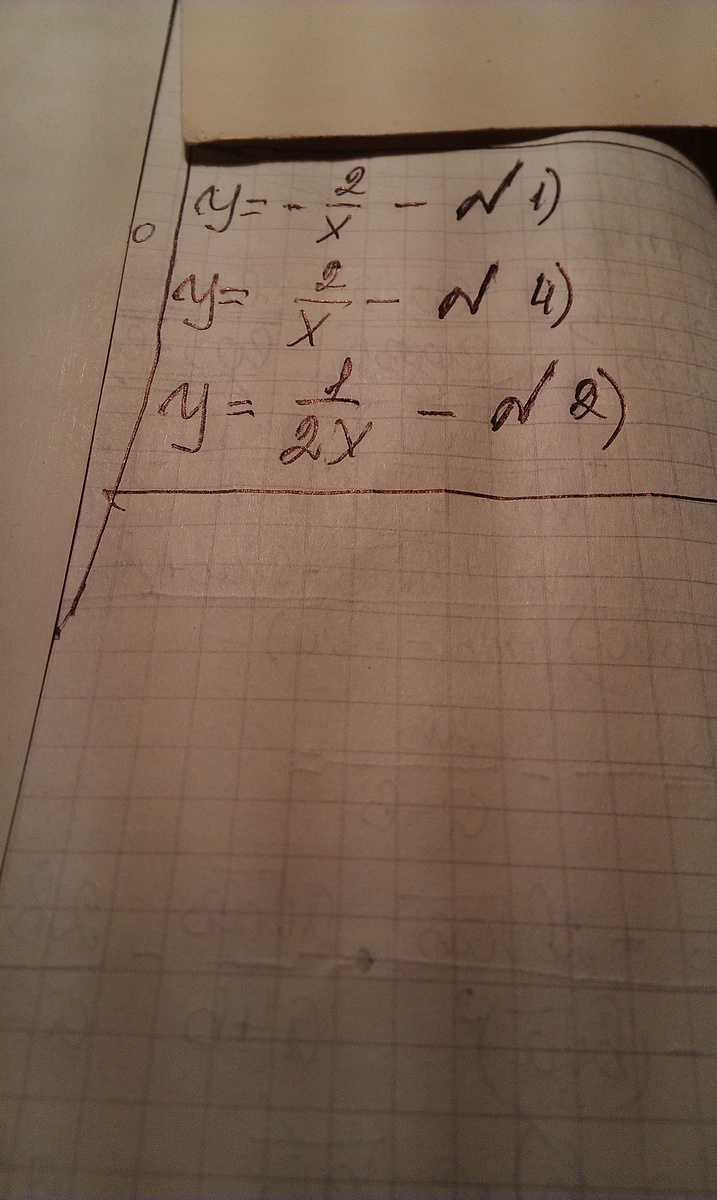 y = - 2/x - N 1)
y = 2/x - N 4)
y = 1/2x - N 2)